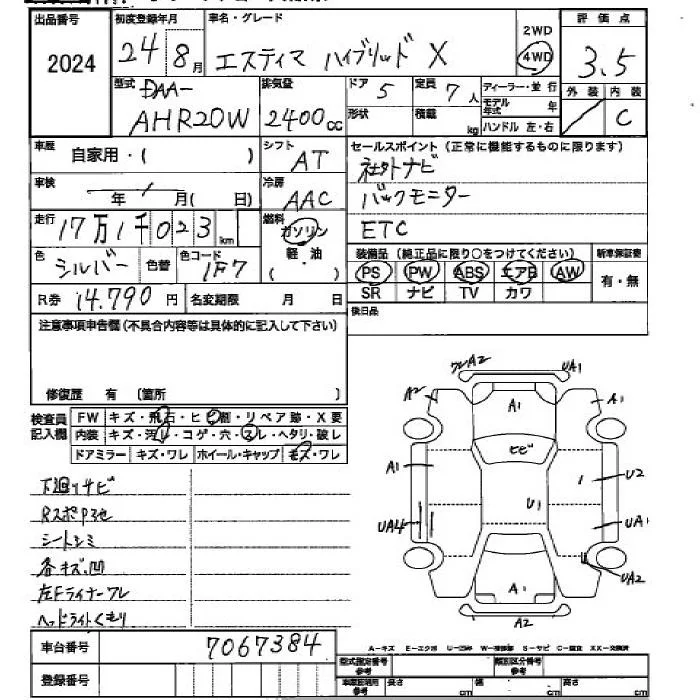 出品番号
2024
初度登録年月
24年8月
車名・グレード
エスティマ ハイブリッド X
2WD
4WD
評価点
3.5
外装 内装
C
型式
DAA-
AHR20W
排気量
2400cc
ドア 5
形状
定員 7人
積載 kg
ディーラー・並行
モデル年式 年
ハンドル 左・右
車歴 自家用・( )
シフト AT
車検 年 月( 日)
冷房 AAC
セールスポイント(正常に機能するものに限ります)
社外ナビ
バックモニター
ETC
走行 17万1千023km
燃料 ガソリン
軽・油
( )
色 シルバー 色替
色コード 1F7
装備品(純正品に限り○をつけてください)
PS PW ABS エアB AW
SR ナビ TV カワ
新車保証書
有・無
R券 14.790円
名変期限 月 日
後日品
注意事項申告欄(不具合内容等は具体的に記入して下さい)
修復歴 有 〔箇所 〕
検査員記入欄
FW キズ・飛石・ヒビ・リペア跡・X要
内装 キズ・汚レ・コゲ・穴・スレ・ヘタリ・破レ
ドアミラー キズ・ワレ ホイール・キャップ キズ・ワレ
下廻りサビ
RスポP3他
シートシミ
各キズ.凹
左Fライナーワレ
ヘッドライトくもり
ワレA2
UA1
A2
A1
A1
ヒビ
A1
U2
U1
UA4
UA1
UA2
A1
A2
車台番号 7067384
登録番号
A-キズ E-エクボ U-凹み S-サビ XX-交換済
型式指定番号
参考
類別区分番号
参考
長さ cm
幅 cm
高さ cm